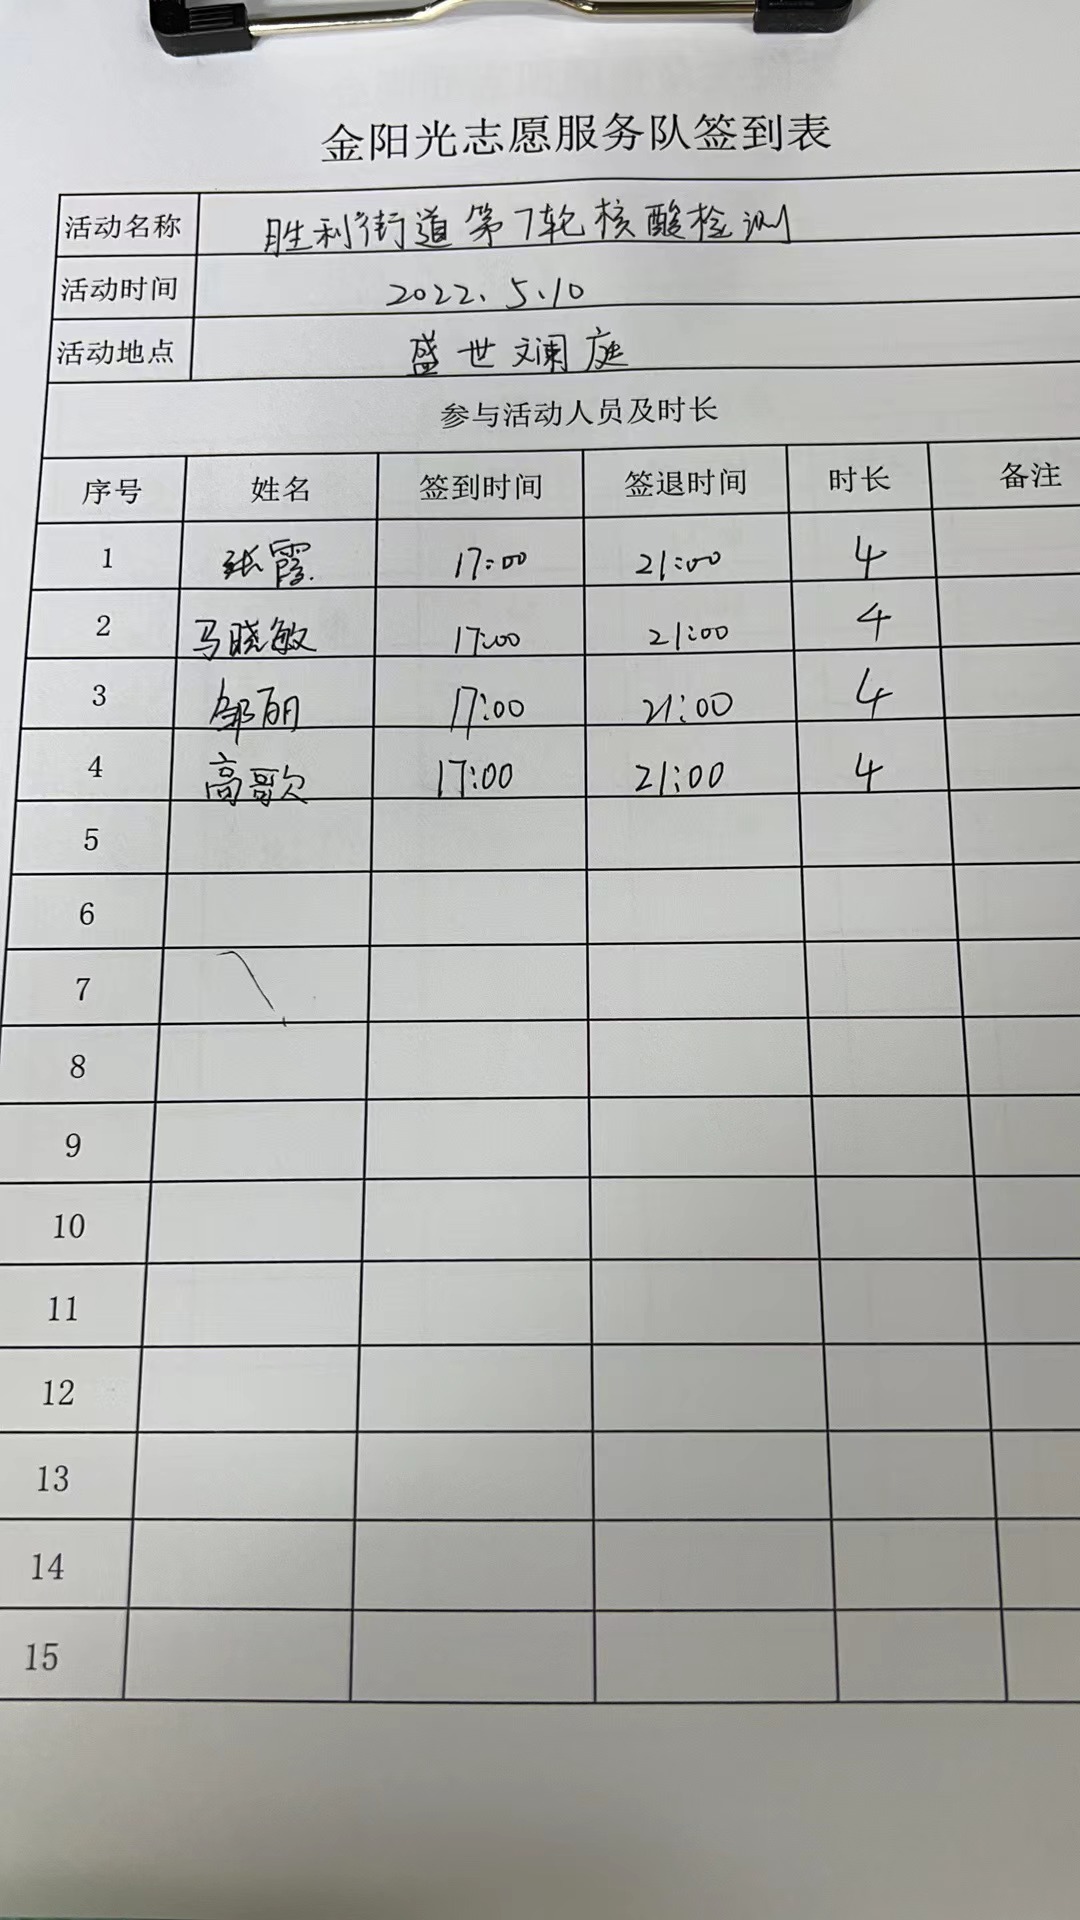 金阳光志愿服务队签到表
活动名称 胜利街道第7轮核酸检测
活动时间 2022.5.10
活动地点 盛世斓庭
参与活动人员及时长
序号 姓名 签到时间 签退时间 时长 备注
1 张霞 17:00 21:00 4
2 马晓敏 17:00 21:00 4
3 邹丽 17:00 21:00 4
4 高歌 17:00 21:00 4
5
6
7
8
9
10
11
12
13
14
15